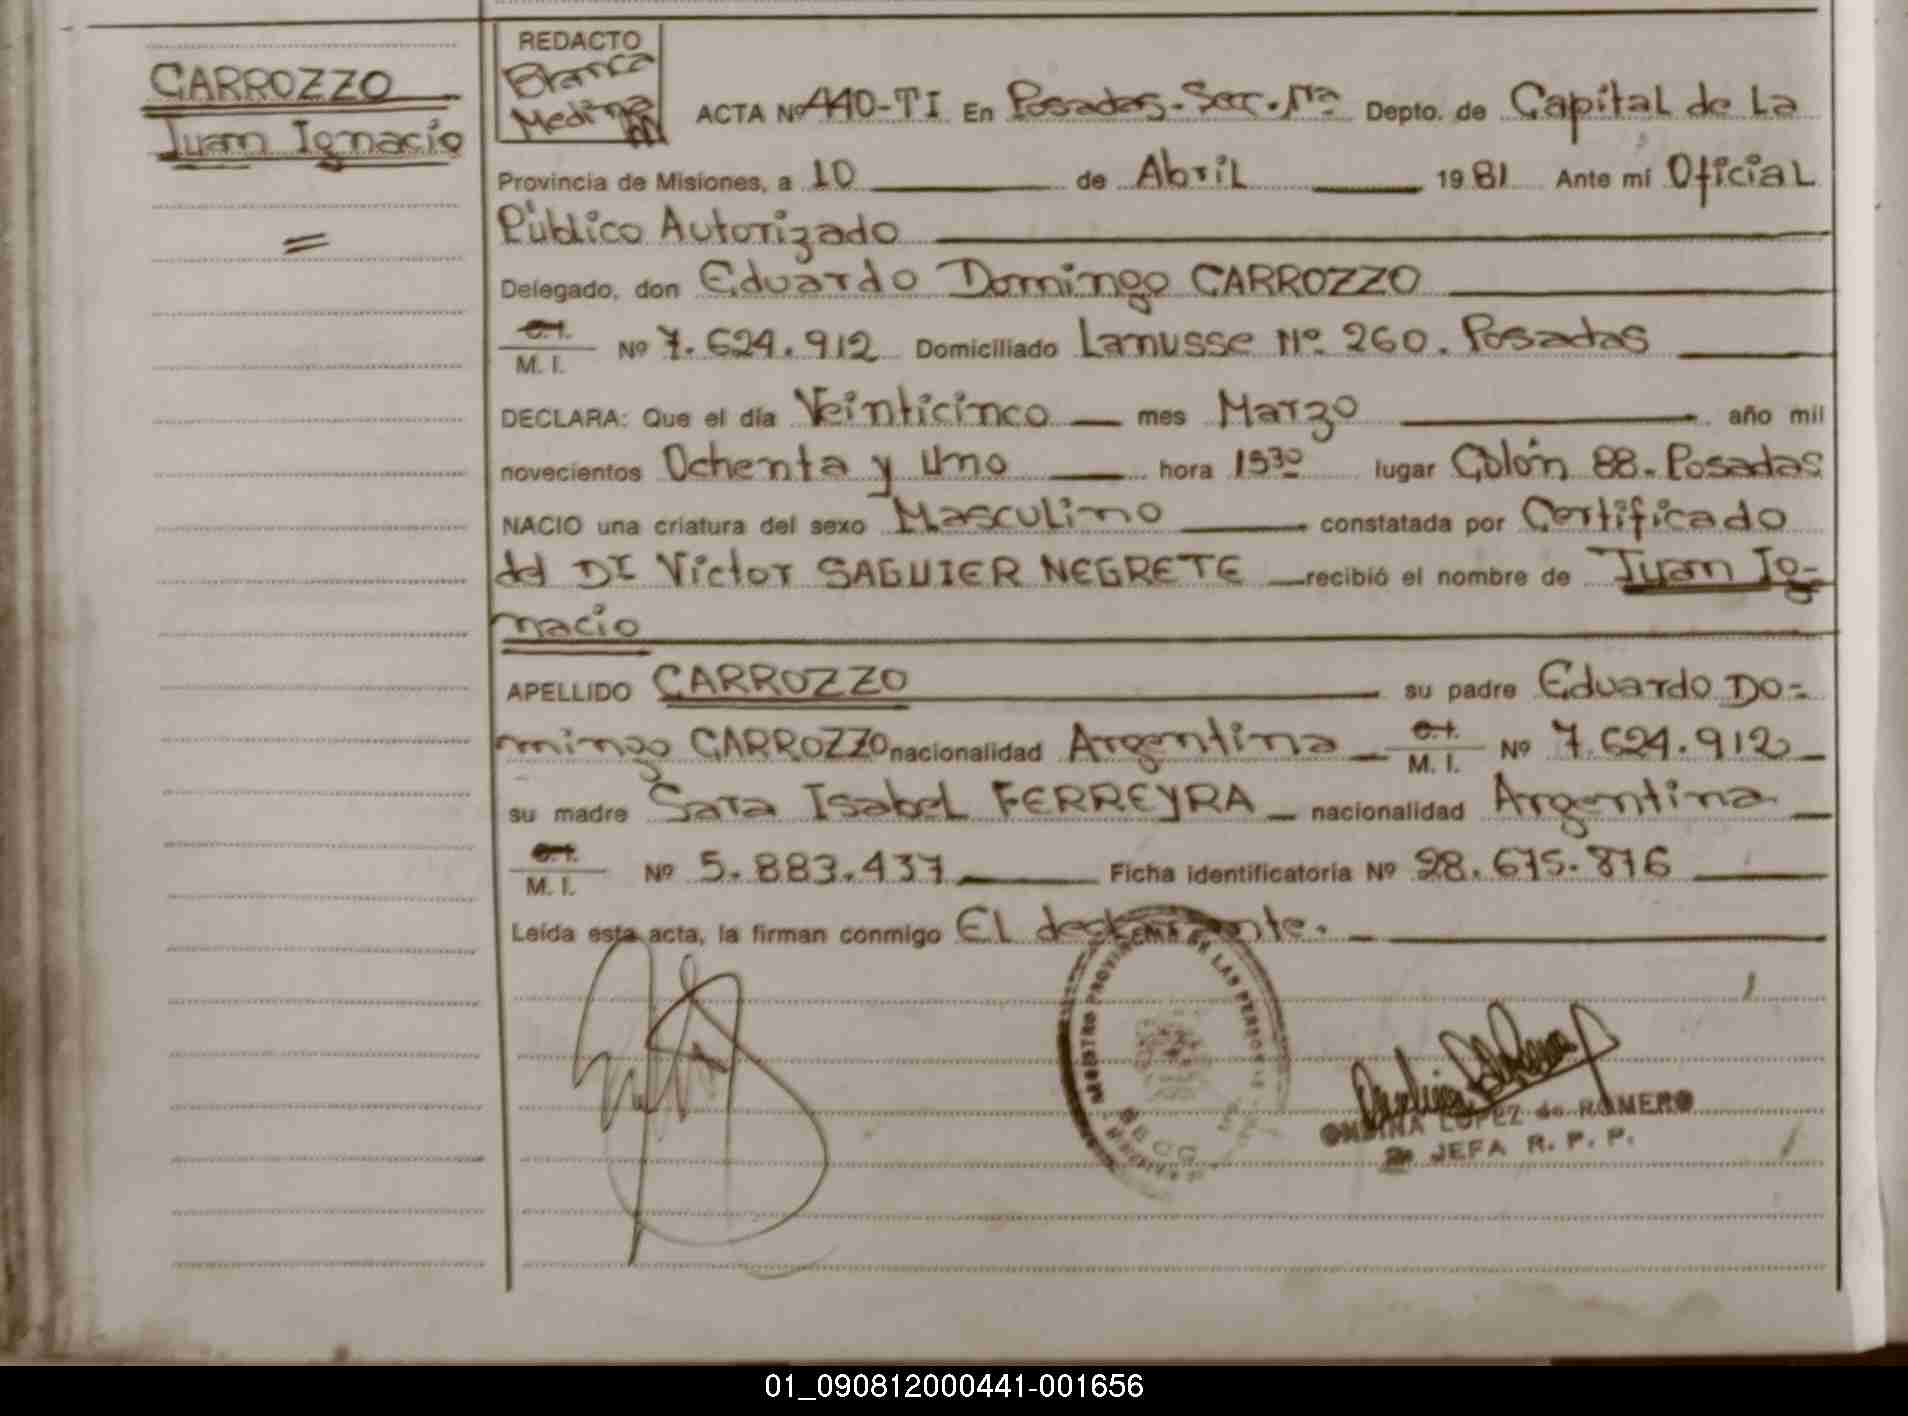 CARROZZO
Juan Ignacio
=
REDACTO
Blanca
Medina
ACTA Nº 440-TI En Posadas-Secc.1ra Depto. de Capital de La
Provincia de Misiones, a 10 de Abril 1981 Ante mí Oficial
Público Autorizado
Delegado, don Eduardo Domingo CARROZZO
C.I.
M. I. Nº 7.624.912 Domiciliado Lanusse Nº 260. Posadas
DECLARA: Que el día Veinticinco mes Marzo año mil
novecientos Ochenta y Uno hora 1530 lugar Colón 88. Posadas
NACIO una criatura del sexo Masculino constatada por Certificado
del Dr Víctor SAGUIER NEGRETE recibió el nombre de Juan Ig-
nacio
APELLIDO CARROZZO su padre Eduardo Do-
mingo CARROZZO nacionalidad Argentina C.I. M. I. Nº 7.624.912
su madre Sara Isabel FERREYRA nacionalidad Argentina
C.I.
M. I. Nº 5.883.437 Ficha identificatoria Nº 28.675.876
Leída esta acta, la firman conmigo El declarante.
REGISTRO PROVINCIAL DE LAS PERSONAS
LOPEZ de ROMERO
JEFA R. P. P.
01_090812000441-001656